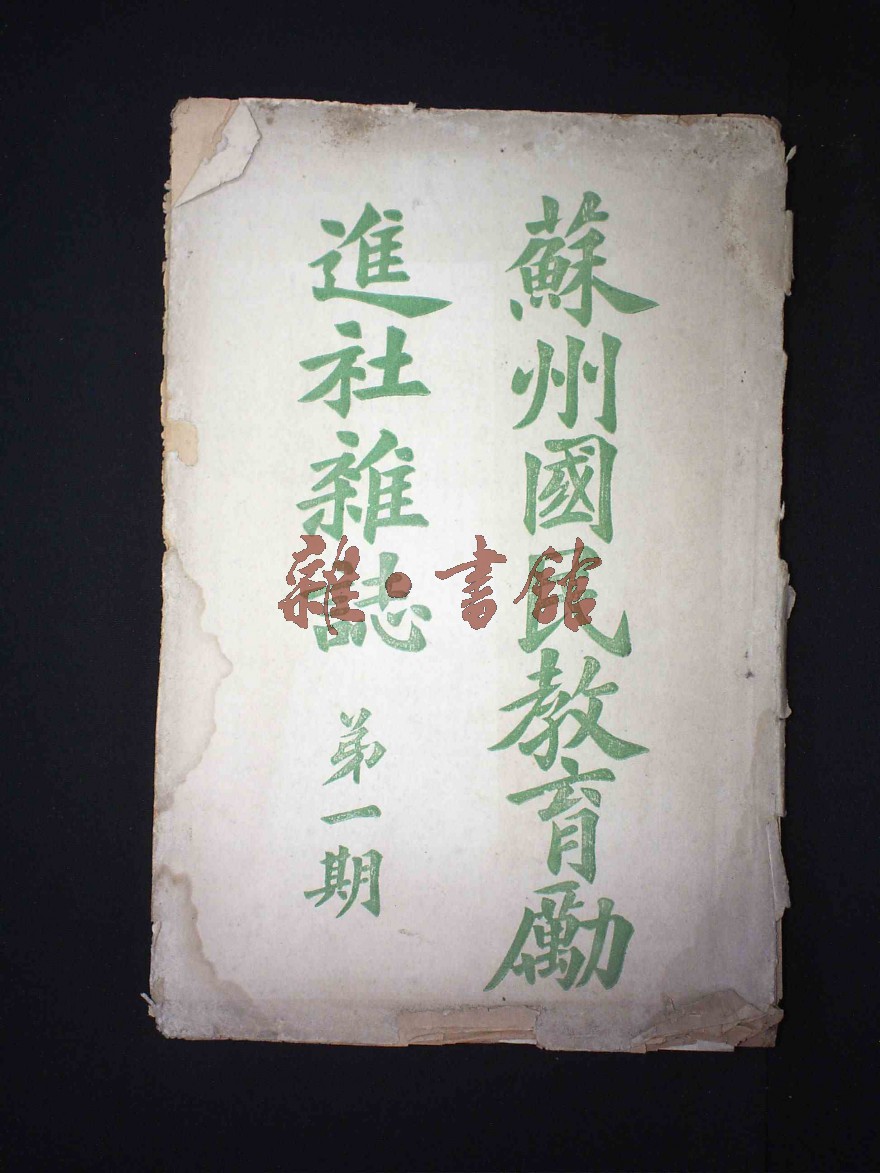 蘇州國民教育勵
進社雜誌
苐一期
雜·書館